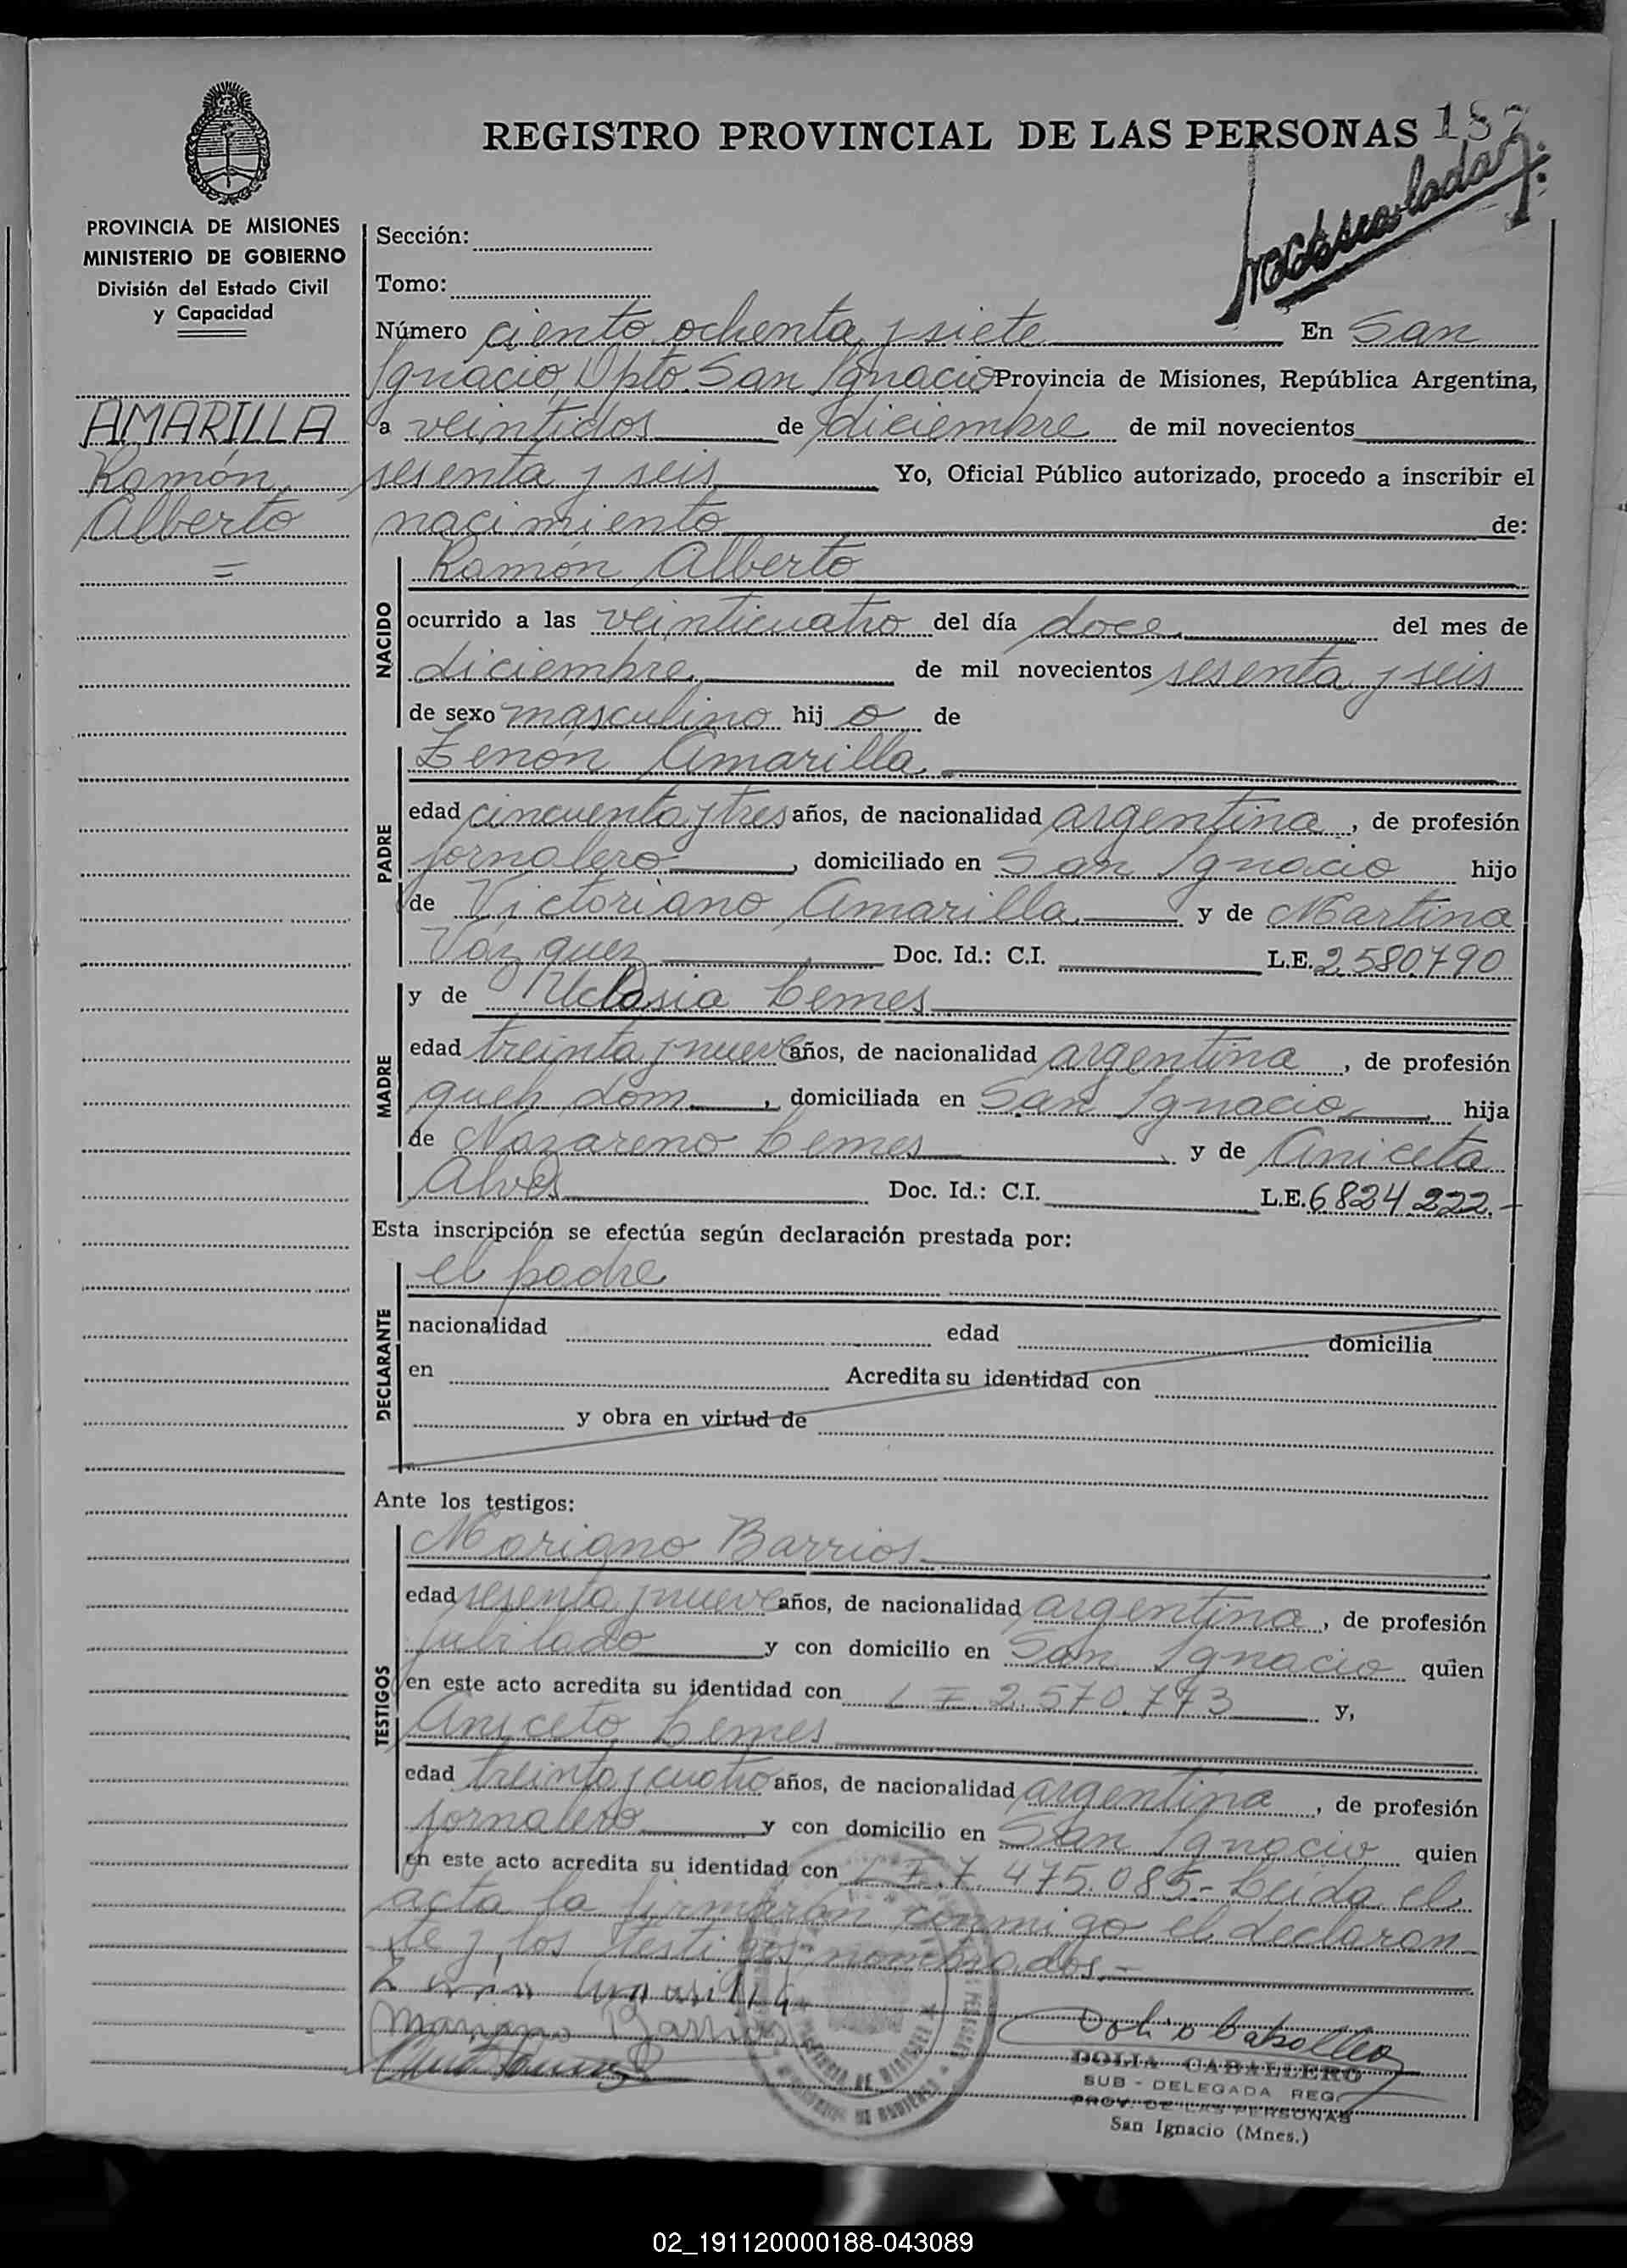 REGISTRO PROVINCIAL DE LAS PERSONAS 187
PROVINCIA DE MISIONES
MINISTERIO DE GOBIERNO
División del Estado Civil
y Capacidad
AMARILLA
Ramón
Alberto
=
Sección:
Tomo:
Número ciento ochenta y siete En San
Ignacio, Dpto. San Ignacio Provincia de Misiones, República Argentina,
a veintidos de diciembre de mil novecientos
sesenta y seis Yo, Oficial Público autorizado, procedo a inscribir el
nacimiento de:
NACIDO
Ramón Alberto
ocurrido a las veinticuatro del día doce del mes de
diciembre de mil novecientos sesenta y seis
de sexo masculino hij o de
PADRE
Zenón Amarilla
edad cincuenta y tres años, de nacionalidad argentina, de profesión
jornalero, domiciliado en San Ignacio hijo
de Victoriano Amarilla y de Martina
Vázquez Doc. Id.: C.I. L.E. 2.580.790
MADRE
y de Lemes
edad treinta y nueve años, de nacionalidad argentina, de profesión
queh dom, domiciliada en San Ignacio hija
de Nazareno Lemes y de Aniceta
Alves Doc. Id.: C.I. L.E. 6824.222.-
Esta inscripción se efectúa según declaración prestada por:
DECLARANTE
el padre
nacionalidad edad domicilia
en Acredita su identidad con
y obra en virtud de
Ante los testigos:
TESTIGOS
Mariano Barrios
edad sesenta y nueve años, de nacionalidad argentina, de profesión
jubilado y con domicilio en San Ignacio quien
en este acto acredita su identidad con L E 2.570.773 y,
Aniceto Lemes
edad treinta y cuatro años, de nacionalidad argentina, de profesión
jornalero y con domicilio en San Ignacio quien
en este acto acredita su identidad con L E. 7.475.085.- Leida el
acta la firmaron conmigo el declaran
te y los testigos nombrados.-
Zenón Amarilla
Mariano Barrios
Dolia Caballero
DOLIA CABALLERO
SUB - DELEGADA REG.
PROV. DE LAS PERSONAS
San Ignacio (Mnes.)
02_191120000188-043089